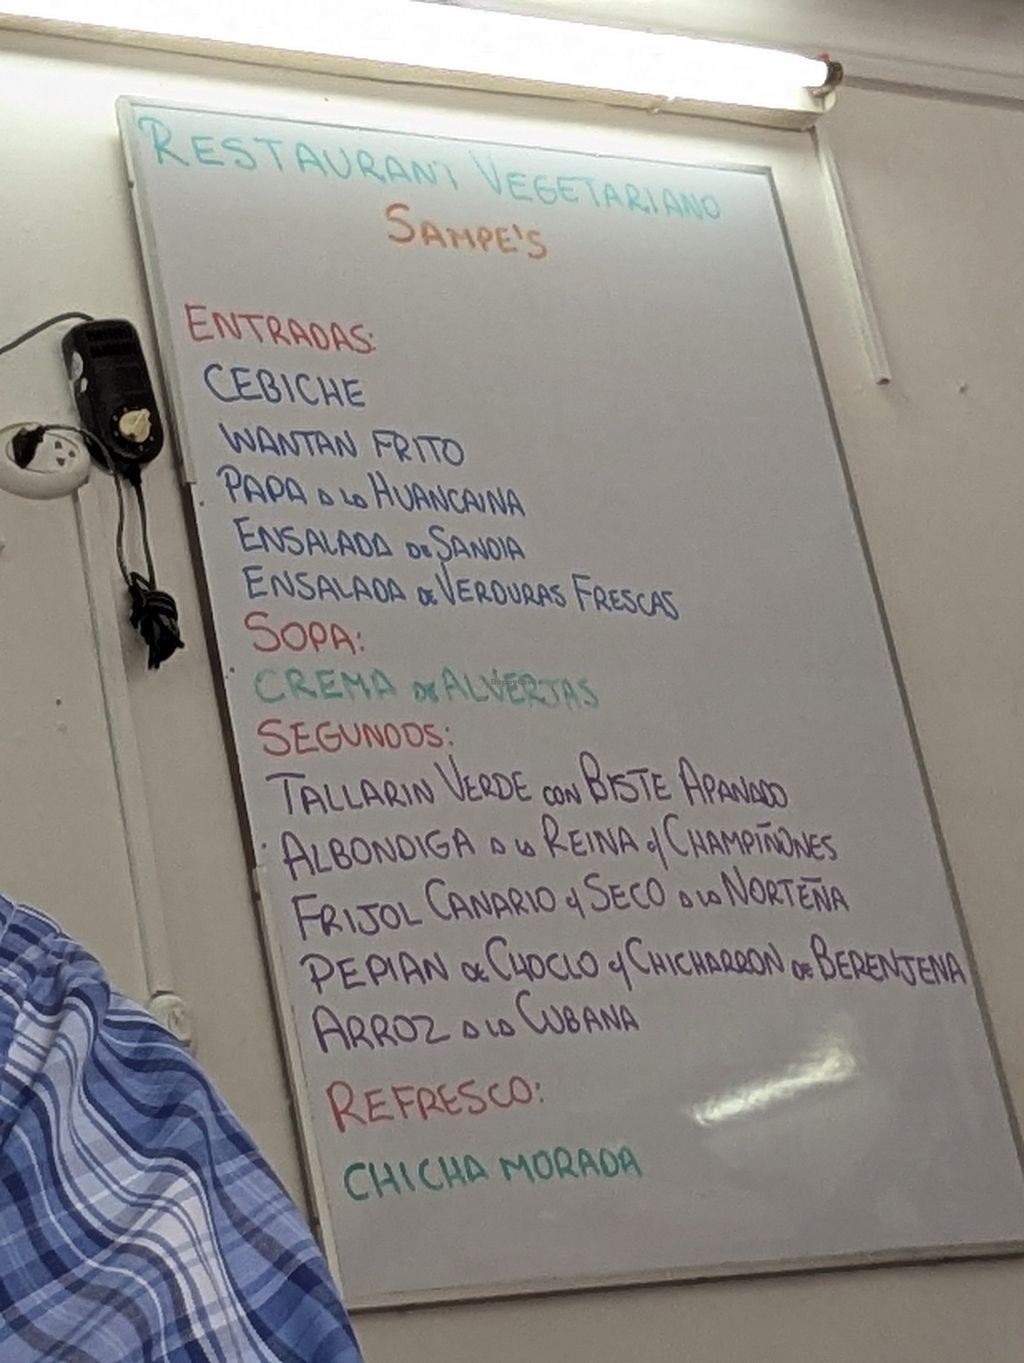 RESTAURANT VEGETARIANO
SAMPE'S
ENTRADAS:
CEBICHE
WANTAN FRITO
PAPA A LA HUANCAINA
ENSALADA DE SANDIA
ENSALADA DE VERDURAS FRESCAS
SOPA:
CREMA DE ALVERJAS
SEGUNDOS:
TALLARIN VERDE CON BISTE APANADO
ALBONDIGA A LA REINA c/ CHAMPIÑONES
FRIJOL CANARIO c/ SECO A LA NORTEÑA
PEPIAN DE CHOCLO c/ CHICHARRON DE BERENJENA
ARROZ A LA CUBANA
REFRESCO:
CHICHA MORADA